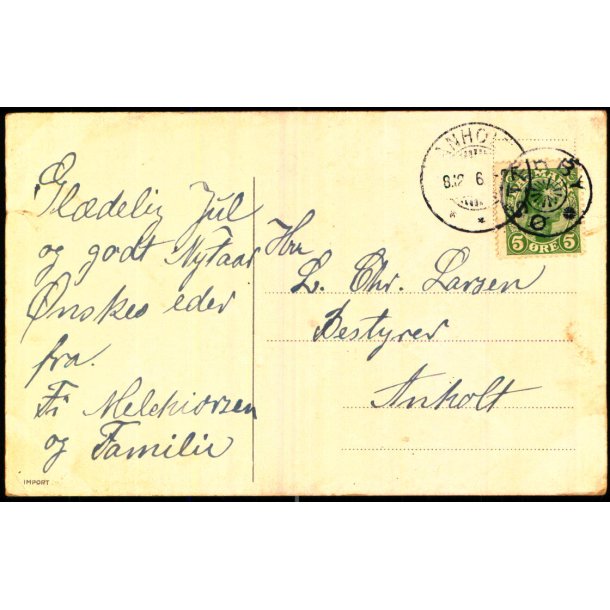 Glædelig Jul
og godt Nytaar
Ønskes eder
fra.
Fi Melchiorsen
og Familie
Hrr
L. Chr. Larsen
Bestyrer
Anholt
ANHOL
8.12 6
5 ØRE 5
IMPORT